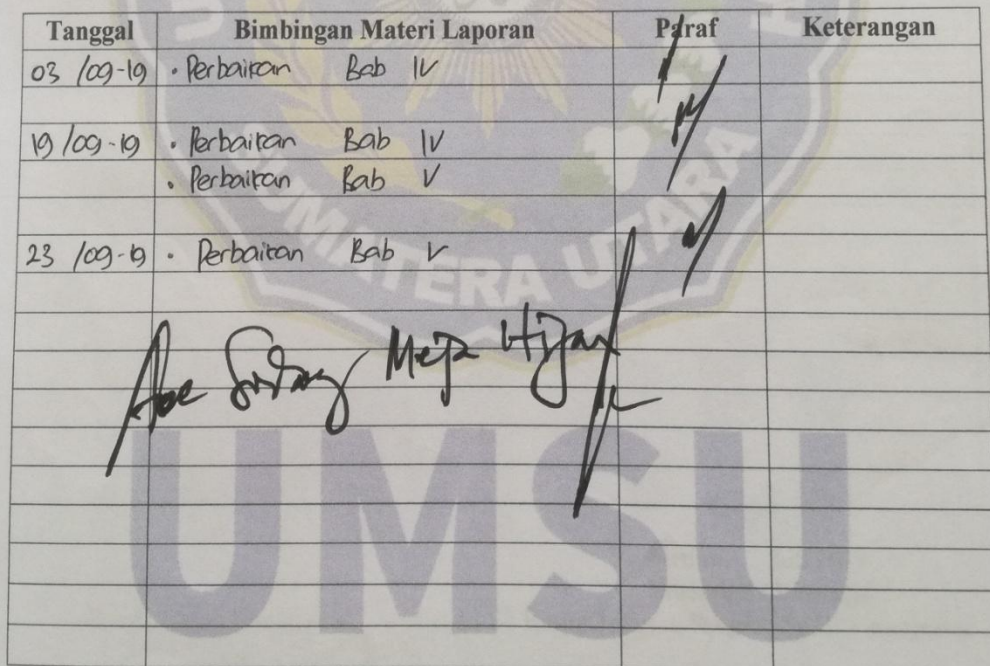 Tanggal Bimbingan Materi Laporan Paraf Keterangan
03 /09-19 • Perbaikan Bab IV
19 /09-19 • Perbaikan Bab IV
• Perbaikan Bab V
23 /09-19 • Perbaikan Bab V
SUMATERA UTARA
Sidang Meja Hijau
UMSU